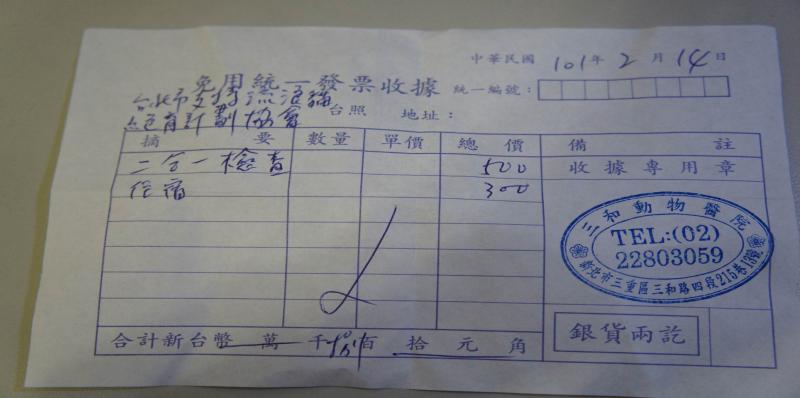 中華民國 101年 2月 14日
免用統一發票收據
統一編號：
台北市支持流浪貓
絕育計劃協會 台照 地址：
摘要 數量 單價 總價 備註
二合一檢查 500 收據專用章
住宿 300
三和動物醫院
TEL:(02)
22803059
新北市三重區三和路四段215巷13號
合計新台幣 萬 千 百 拾 元 角
銀貨兩訖